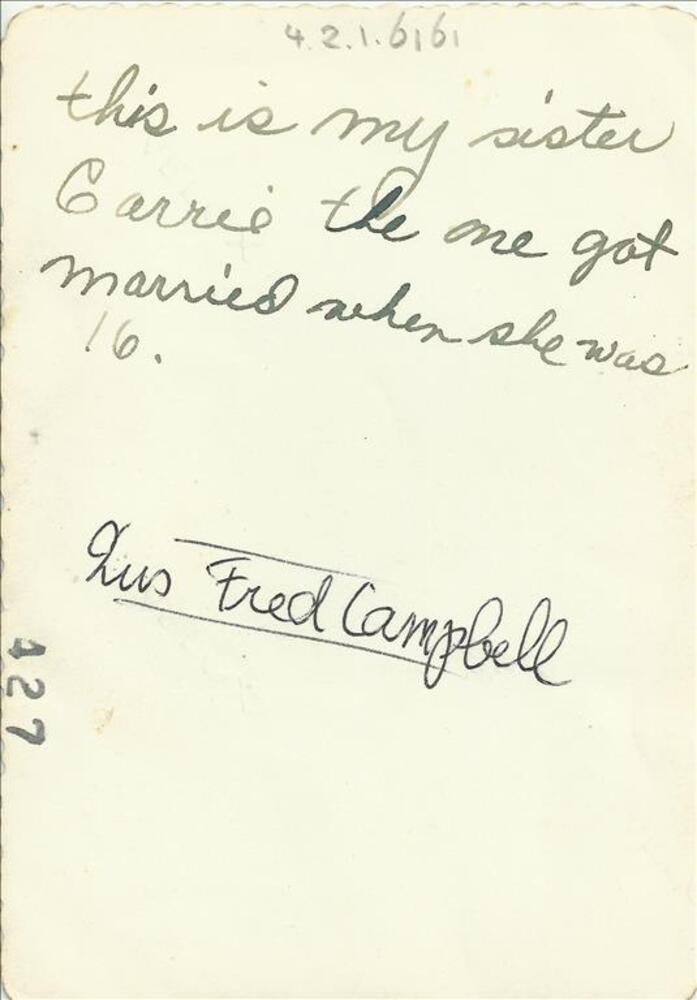 4.2.1.6161
this is my sister
Carrie the one got
married when she was
16.
Fred Campbell
427